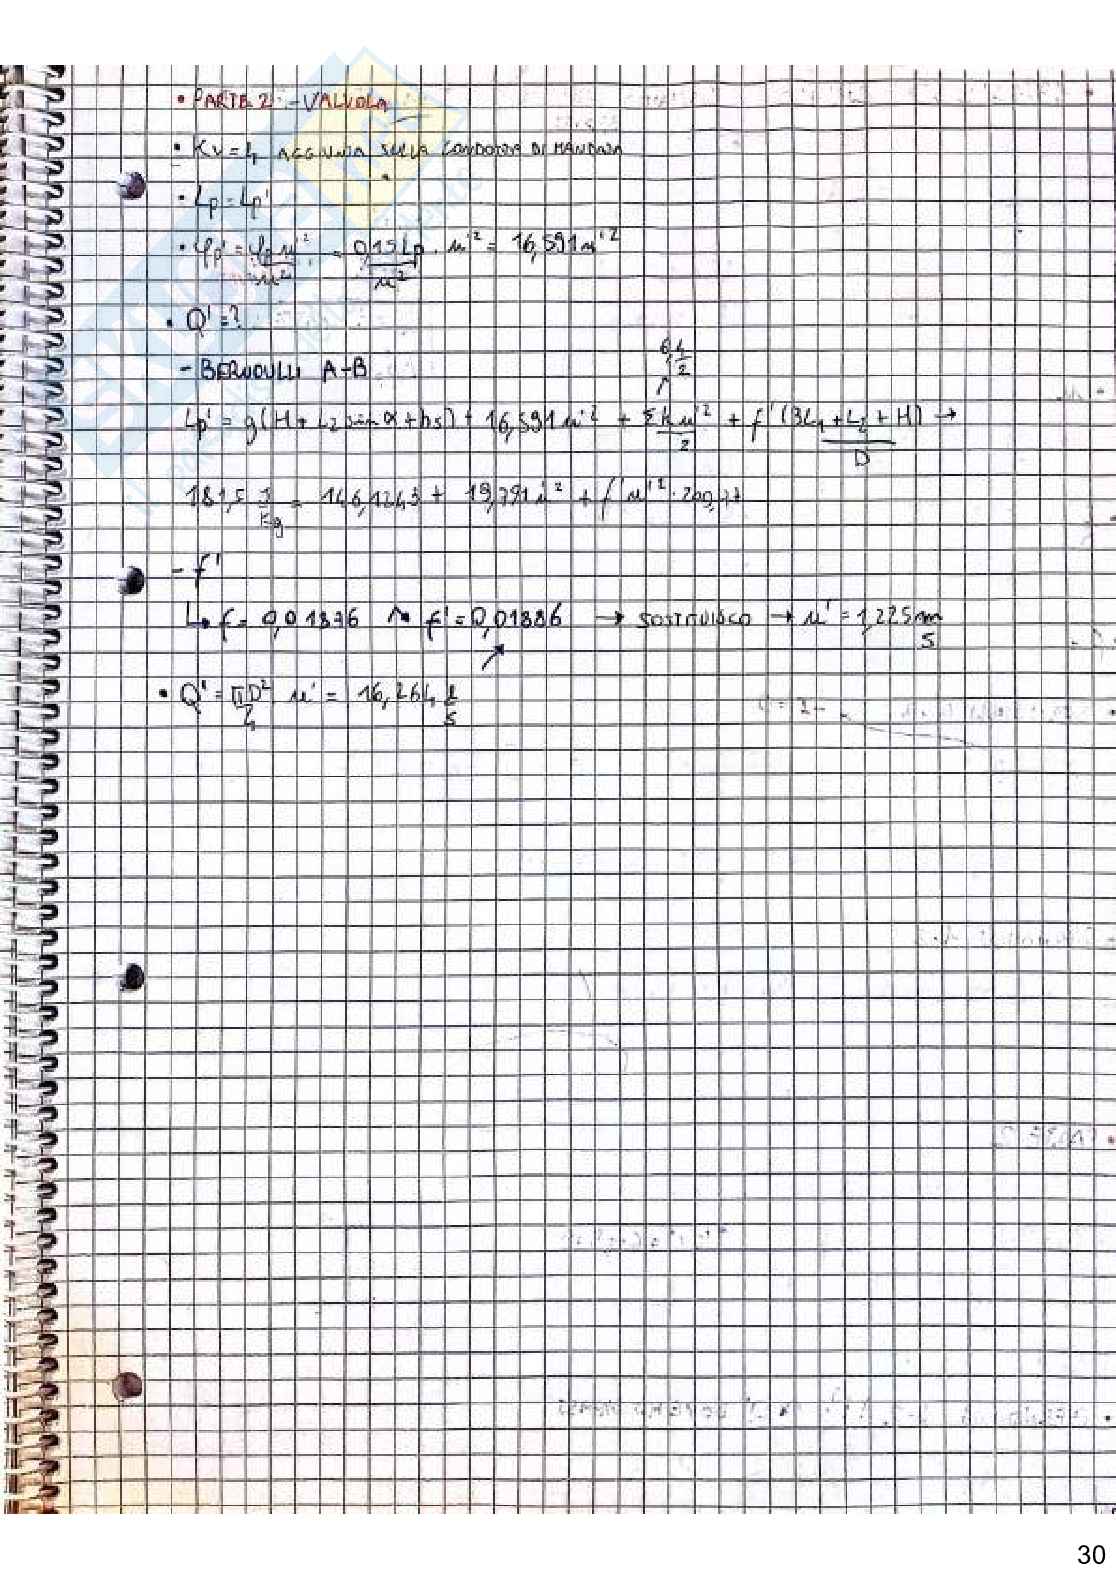 • PARTE 2 - VALVOLA
• Kv = 4 AGGIUNTA SULLA CONDOTTA DI MANDATA
• Lp = Lp'
• φp' = φp u'² / u² = 0,15 Lp / u² · u'² = 16,591 u'²
• Q' = ?
- BERNOULLI A-B
6,4 / 2
Lp' = g(H + L2 sin α + hs) + 16,591 u'² + Σk u'² / 2 + f' (3L1 + L2 + H) / D →
181,5 J/kg = 146,1243 + 19,791 u'² + f' u'² · 200,77
- f'
↳ f = 0,01836 ↷ f' = 0,01886 → SOSTITUISCO → u' = 1,225 m/s
• Q' = πD²/4 u' = 16,264 l/s
30